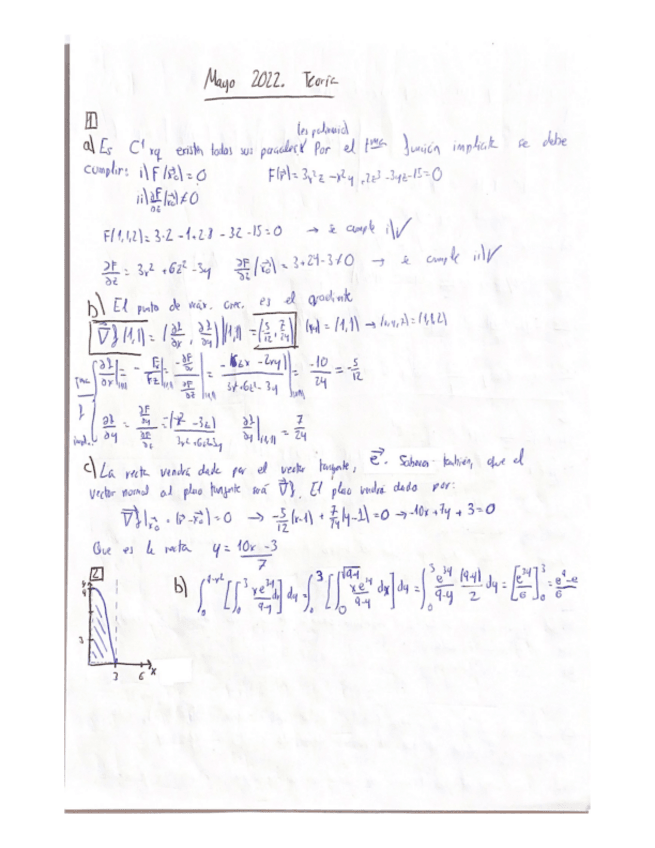 Mayo 2022. Teoría
1
(es polinomio)
a) Es C¹ xq existen todas sus parciales. Por el tma función implícita se debe
cumplir: i) F(x₀) = 0 F(r) = 3x²z - x²y + 2z³ - 3yz - 15 = 0
ii) ∂F/∂z (x₀) ≠ 0
F(1,1,2) = 3·2 - 1 + 2·8 - 3·2 - 15 = 0 → se cumple i) ✓
∂F/∂z = 3x² + 6z² - 3y ∂F/∂z (x₀) = 3 + 24 - 3 ≠ 0 → se cumple ii) ✓
b) El punto de máx. crec. es el gradiente
∇f(1,1) = (∂f/∂x, ∂f/∂y)|(1,1) = (-5/12, 7/24) (x,y) = (1,1) → (x,y,z) = (1,1,2)
∂f/∂x|(1,1) = -Fx/Fz|(1,1) = -∂F/∂x / ∂F/∂z = -(6zx - 2xy)/(3x² + 6z² - 3y)|(1,1) = -10/24 = -5/12
∂f/∂y = -∂F/∂y / ∂F/∂z = -(-x² - 3z)/(3x² + 6z² - 3y) ∂f/∂y|(1,1) = 7/24
c) La recta vendrá dada por el vector tangente, e. Sabemos también, que el
vector normal al plano tangente será ∇f. El plano vendrá dado por:
∇f|x₀ · (r - x₀) = 0 → -5/12 (x-1) + 7/24 (y-1) = 0 → -10x + 7y + 3 = 0
Que es la recta y = (10x - 3)/7
2
b) ∫₀ [∫₀³ xe /9-y dx] dy = ∫₀³ [∫₀^√(9-y) xe /9-y dx] dy = ∫₀³ e /9-y (9-y)/2 dy = [e /6]₀³ = /6
9
3
3 6 x